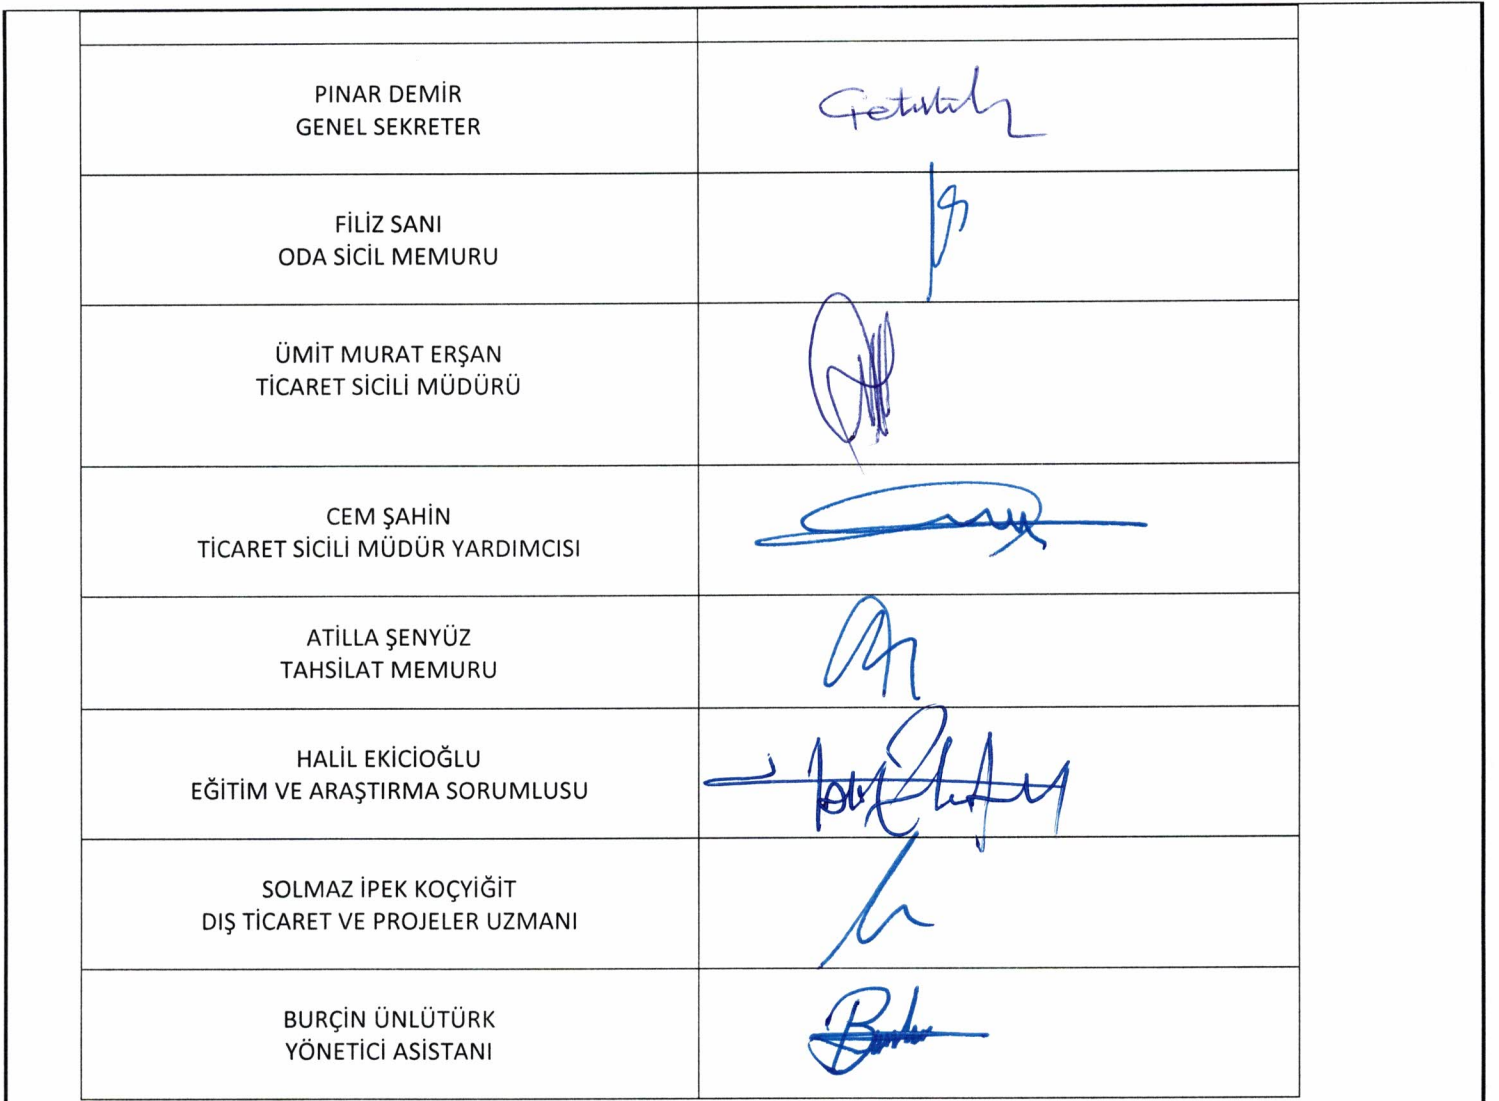 PINAR DEMİR
GENEL SEKRETER
FİLİZ SANI
ODA SİCİL MEMURU
ÜMİT MURAT ERŞAN
TİCARET SİCİLİ MÜDÜRÜ
CEM ŞAHİN
TİCARET SİCİLİ MÜDÜR YARDIMCISI
ATİLLA ŞENYÜZ
TAHSİLAT MEMURU
HALİL EKİCİOĞLU
EĞİTİM VE ARAŞTIRMA SORUMLUSU
SOLMAZ İPEK KOÇYİĞİT
DIŞ TİCARET VE PROJELER UZMANI
BURÇİN ÜNLÜTÜRK
YÖNETİCİ ASİSTANI